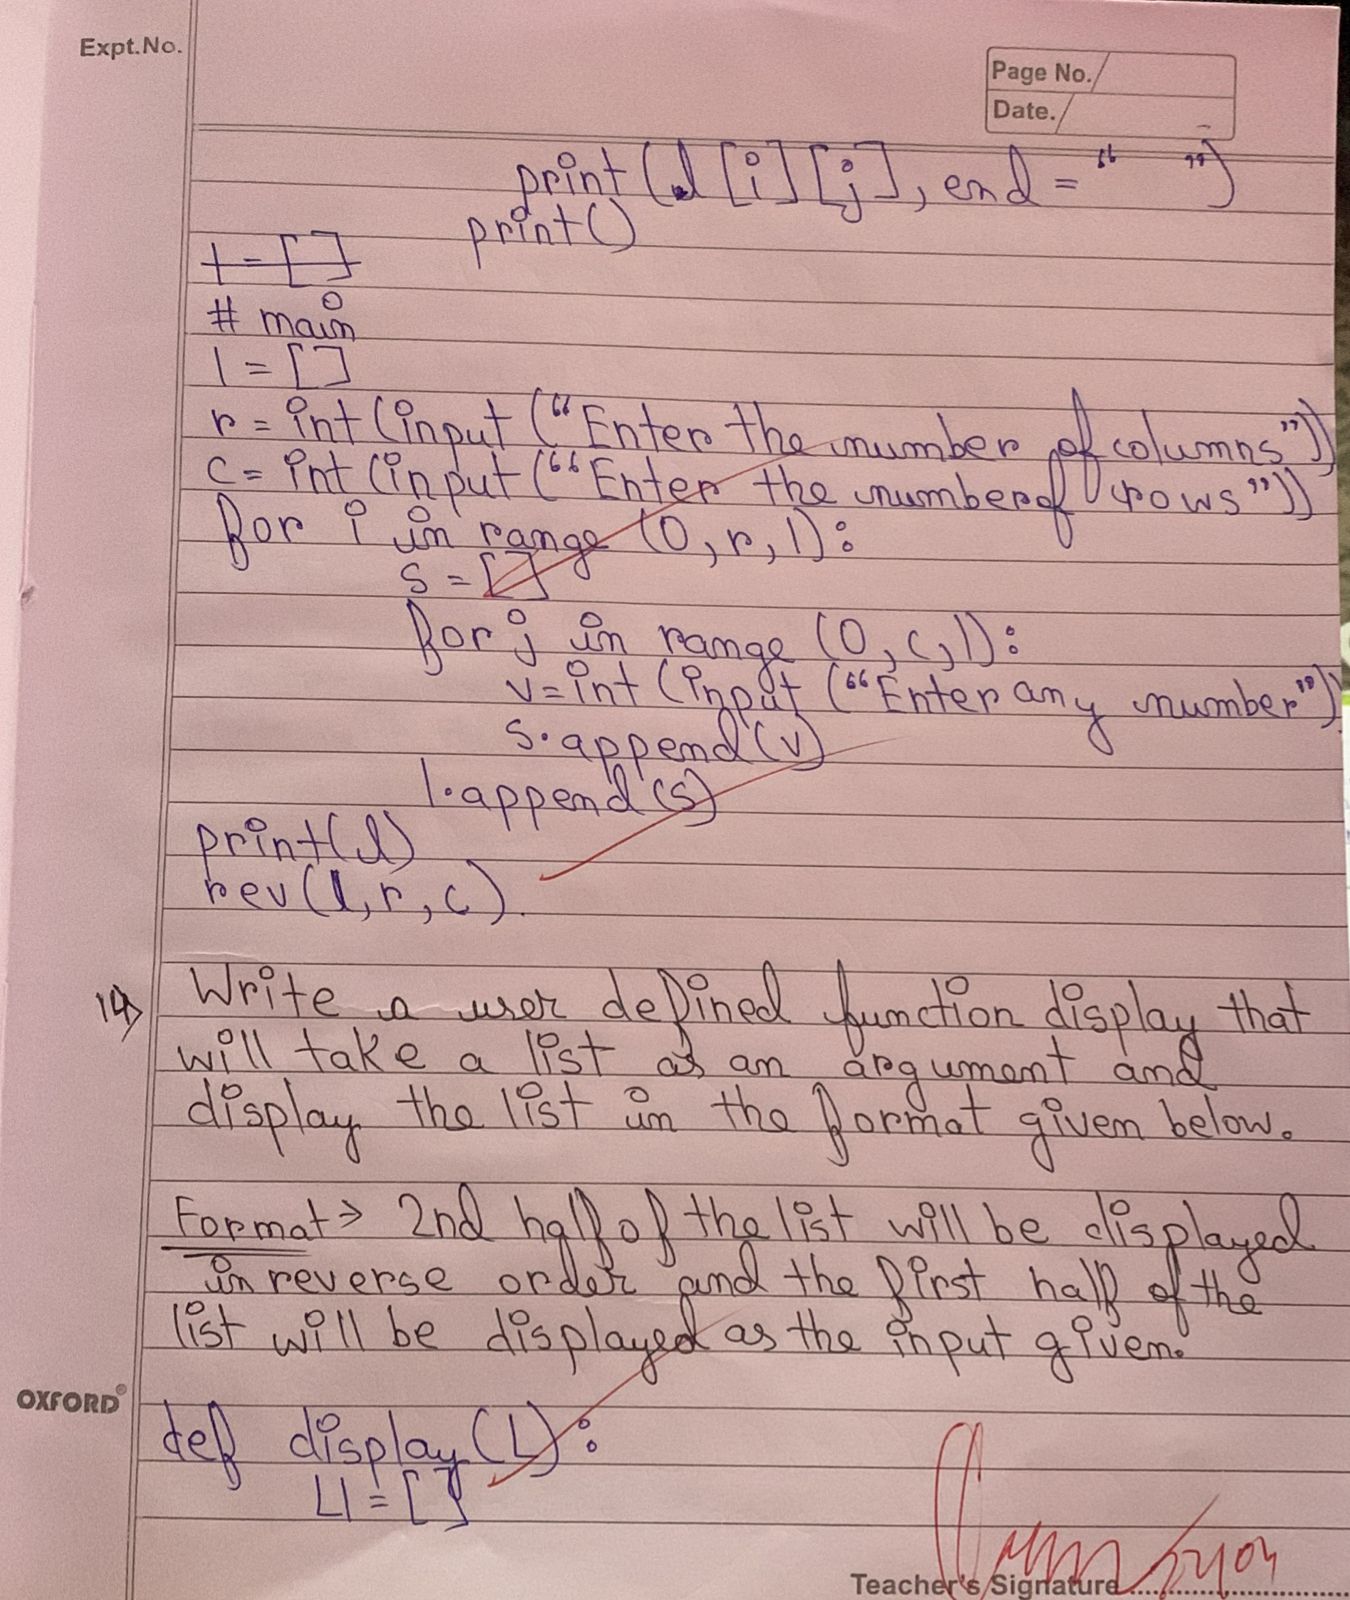 Expt.No.
Page No.
Date.
print(l[i][j], end = “ ”)
print()
l = []
# main
l = []
r = int(input(“Enter the number of columns”))
c = int(input(“Enter the number of rows”))
for i in range (0, r, 1):
s = []
for j in range (0, c, 1):
v = int(input(“Enter any number”)
s.append(v)
l.append(s)
print(l)
rev(l, r, c).
14)
Write a user defined function display that
will take a list as an argument and
display the list in the format given below.
Format → 2nd half of the list will be displayed
in reverse order and the first half of the
list will be displayed as the input given.
OXFORD®
def display(L):
L1 = []
Teacher's Signature